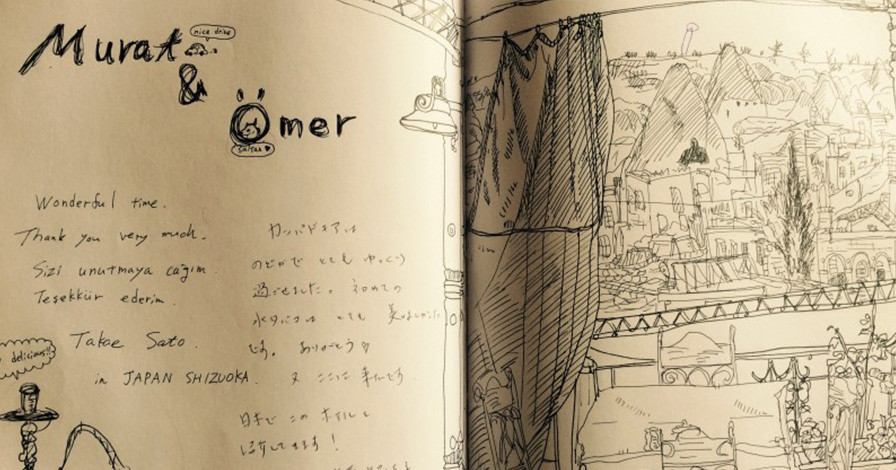 Murat
nice drive
&
Ömer
Sultan
Wonderful time.
Thank you very much.
Sizi unutmaya cağım
Teşekkür ederim.
Takae Sato.
in JAPAN SHIZUOKA.
delicious!!
カッパドキアは
のどかで とても ゆっくり
過ごせました。 初めての
水タバコは とても 美味しかった
です。 ありがとう
又 ここに 来たいです
日本で この ホテルを
紹介してます!